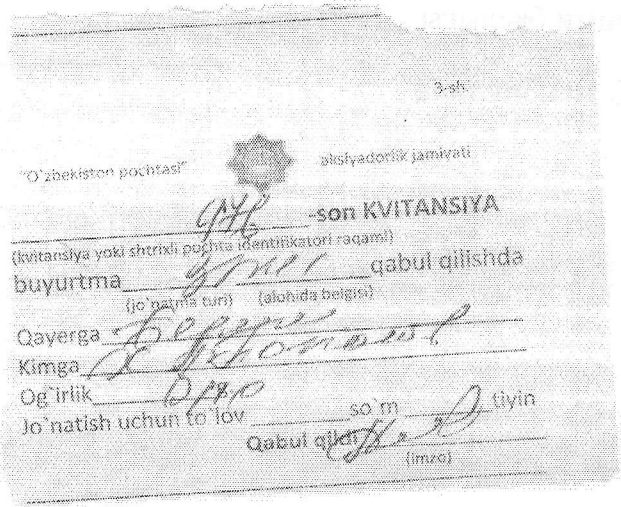 3-sh.
"O`zbekiston pochtasi" aksiyadorlik jamiyati
-son KVITANSIYA
(kvitansiya yoki shtrixli pochta identifikatori raqami)
buyurtma qabul qilishda
(jo`natma turi) (alohida belgisi)
Qayerga
Kimga
Og`irlik
Jo`natish uchun to`lov so`m tiyin
Qabul qildi
(imzo)